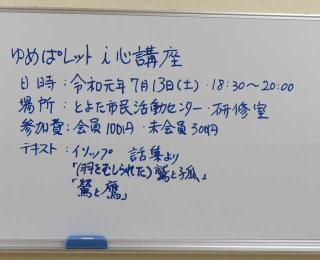 ゆめぱレット i心講座
日時：令和元年7月13日(土)・18:30～20:00
場所：とよた市民活動センター・研修室
参加費：会員100円・未会員300円
テキスト：イソップ 話集より
「(羽をむしられた)鷲と狐」
「鷲と鷹」